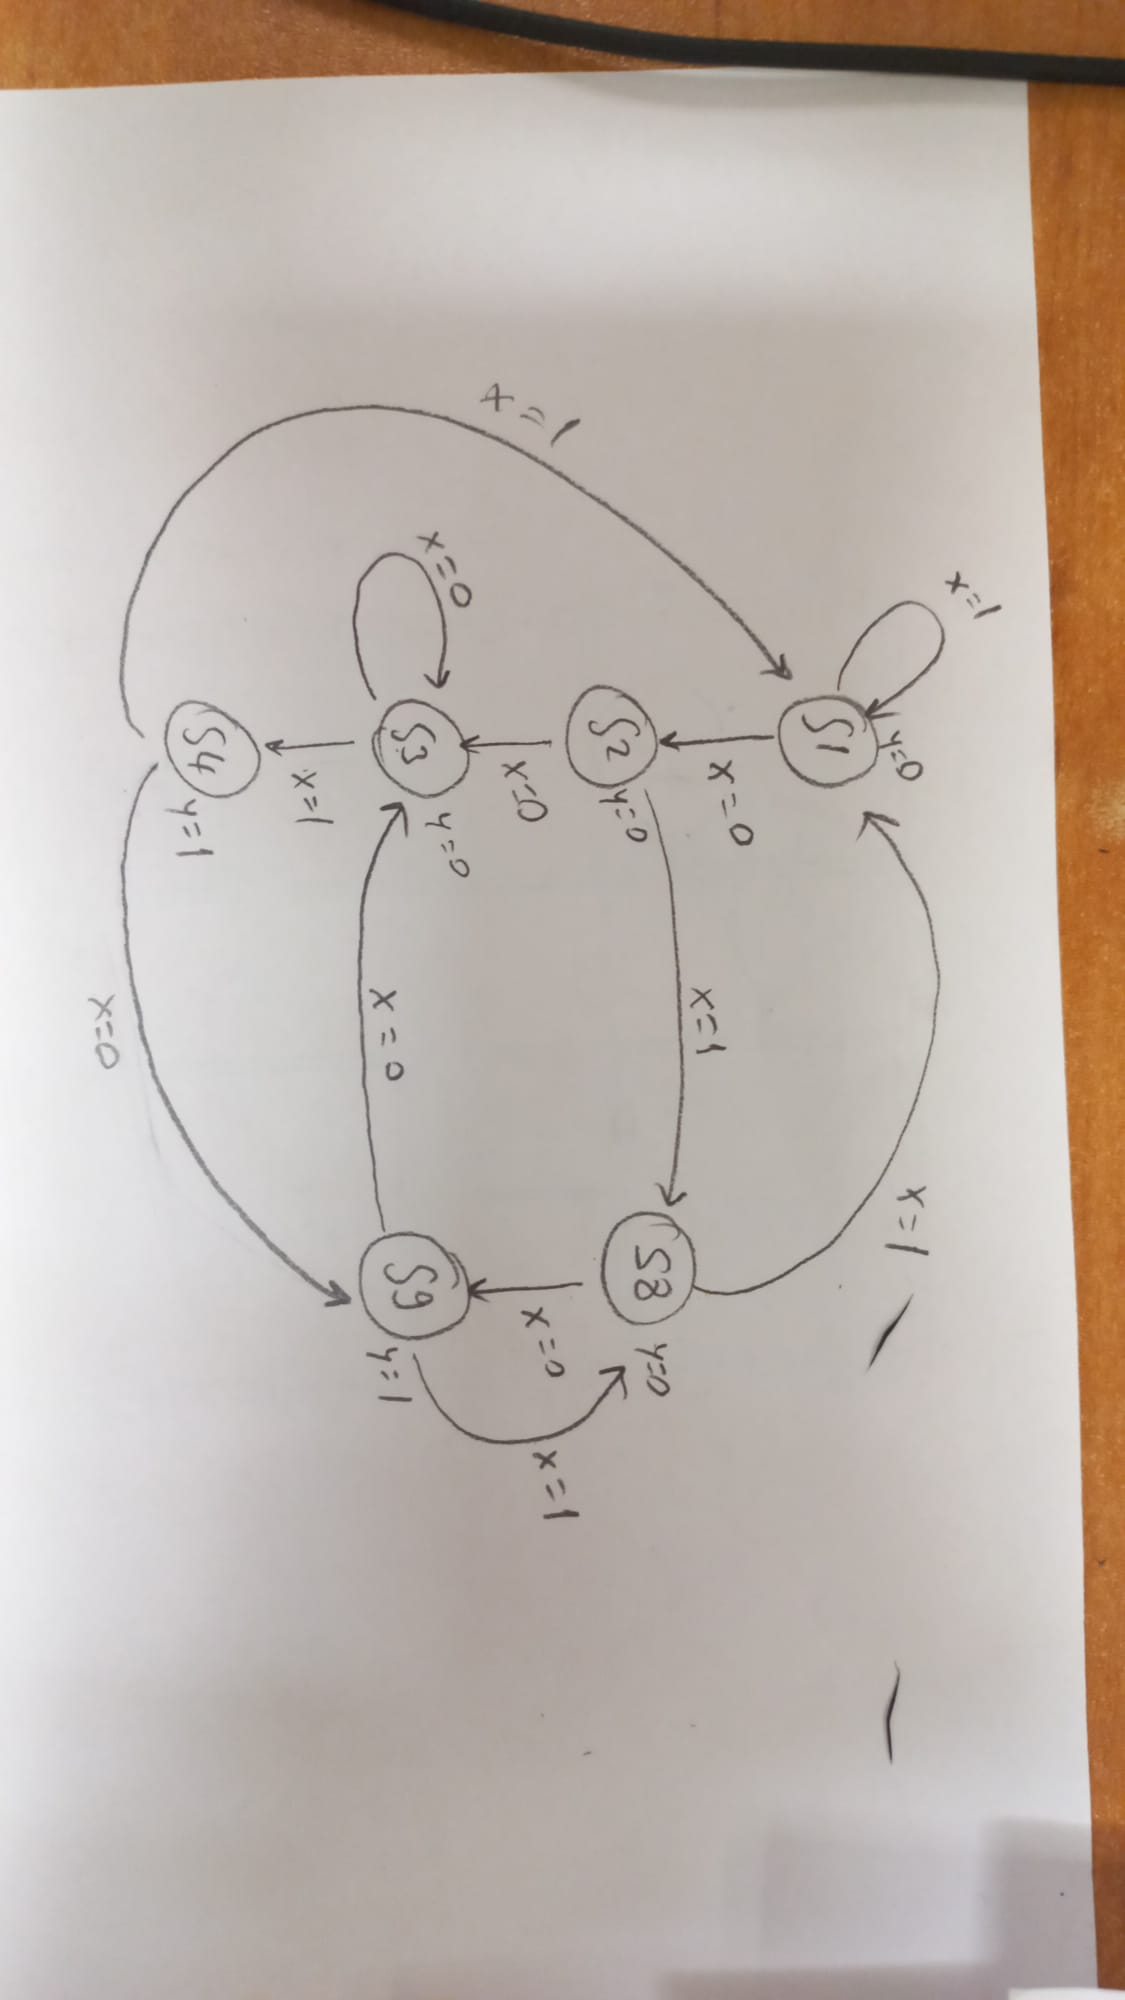 x=1
y=0
S1
x=1
x=0
x=1
S2
y=0
S8
y=0
x=1
x=0
x=0
x=1
x=0
S3
y=0
x=0
S9
y=1
x=1
S4
y=1
x=0